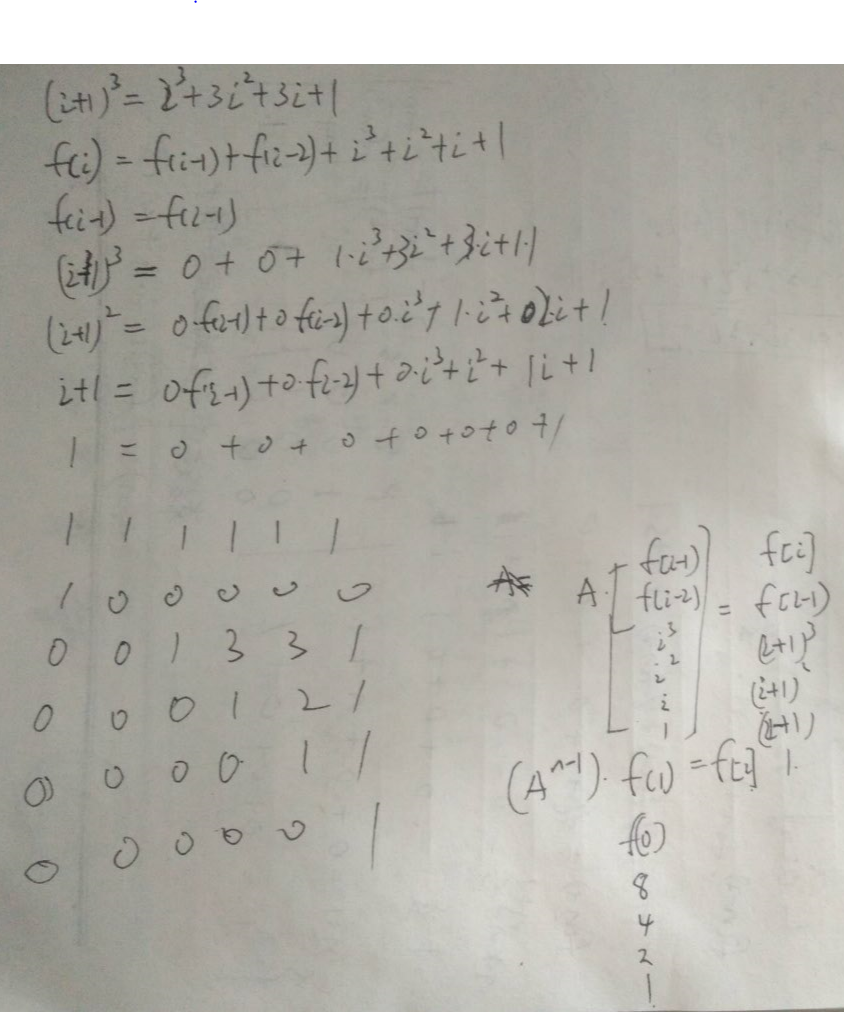 (i+1)³ = i³+3i²+3i+1
f(i) = f(i-1)+f(i-2)+i³+i²+i+1
f(i-1) = f(i-1)
(i+1)³ = 0 + 0 + 1·i³+3i²+3·i+1·1
(i+1)² = 0·f(i-1)+0·f(i-2)+0·i³+1·i²+2·i+1
i+1 = 0·f(i-1)+0·f(i-2)+0·i³+i²+1i+1
1 = 0 + 0 + 0 + 0 + 0 + 0 + 1
1 1 1 1 1 1
1 0 0 0 0 0
0 0 1 3 3 1
0 0 0 1 2 1
0 0 0 0 1 1
0 0 0 0 0 1
A· [ f(i-1) ] = f[i]
f(i-2) f[i-1)
i³ (i+1)³
i² (i+1)²
i (i+1)
1 1.
(Aⁿ⁻¹)· f(1) = f[i]
f(0)
8
4
2
1